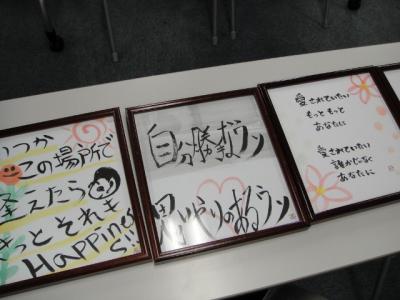 いつか
この場所で
逢えたら
きっとそれも
HAPPiNGS!!
自分勝手なウソ
思いやりのあるウソ
愛されていたい
もっと もっと
あなたに
愛されていたい
誰かじゃなく
あなたに